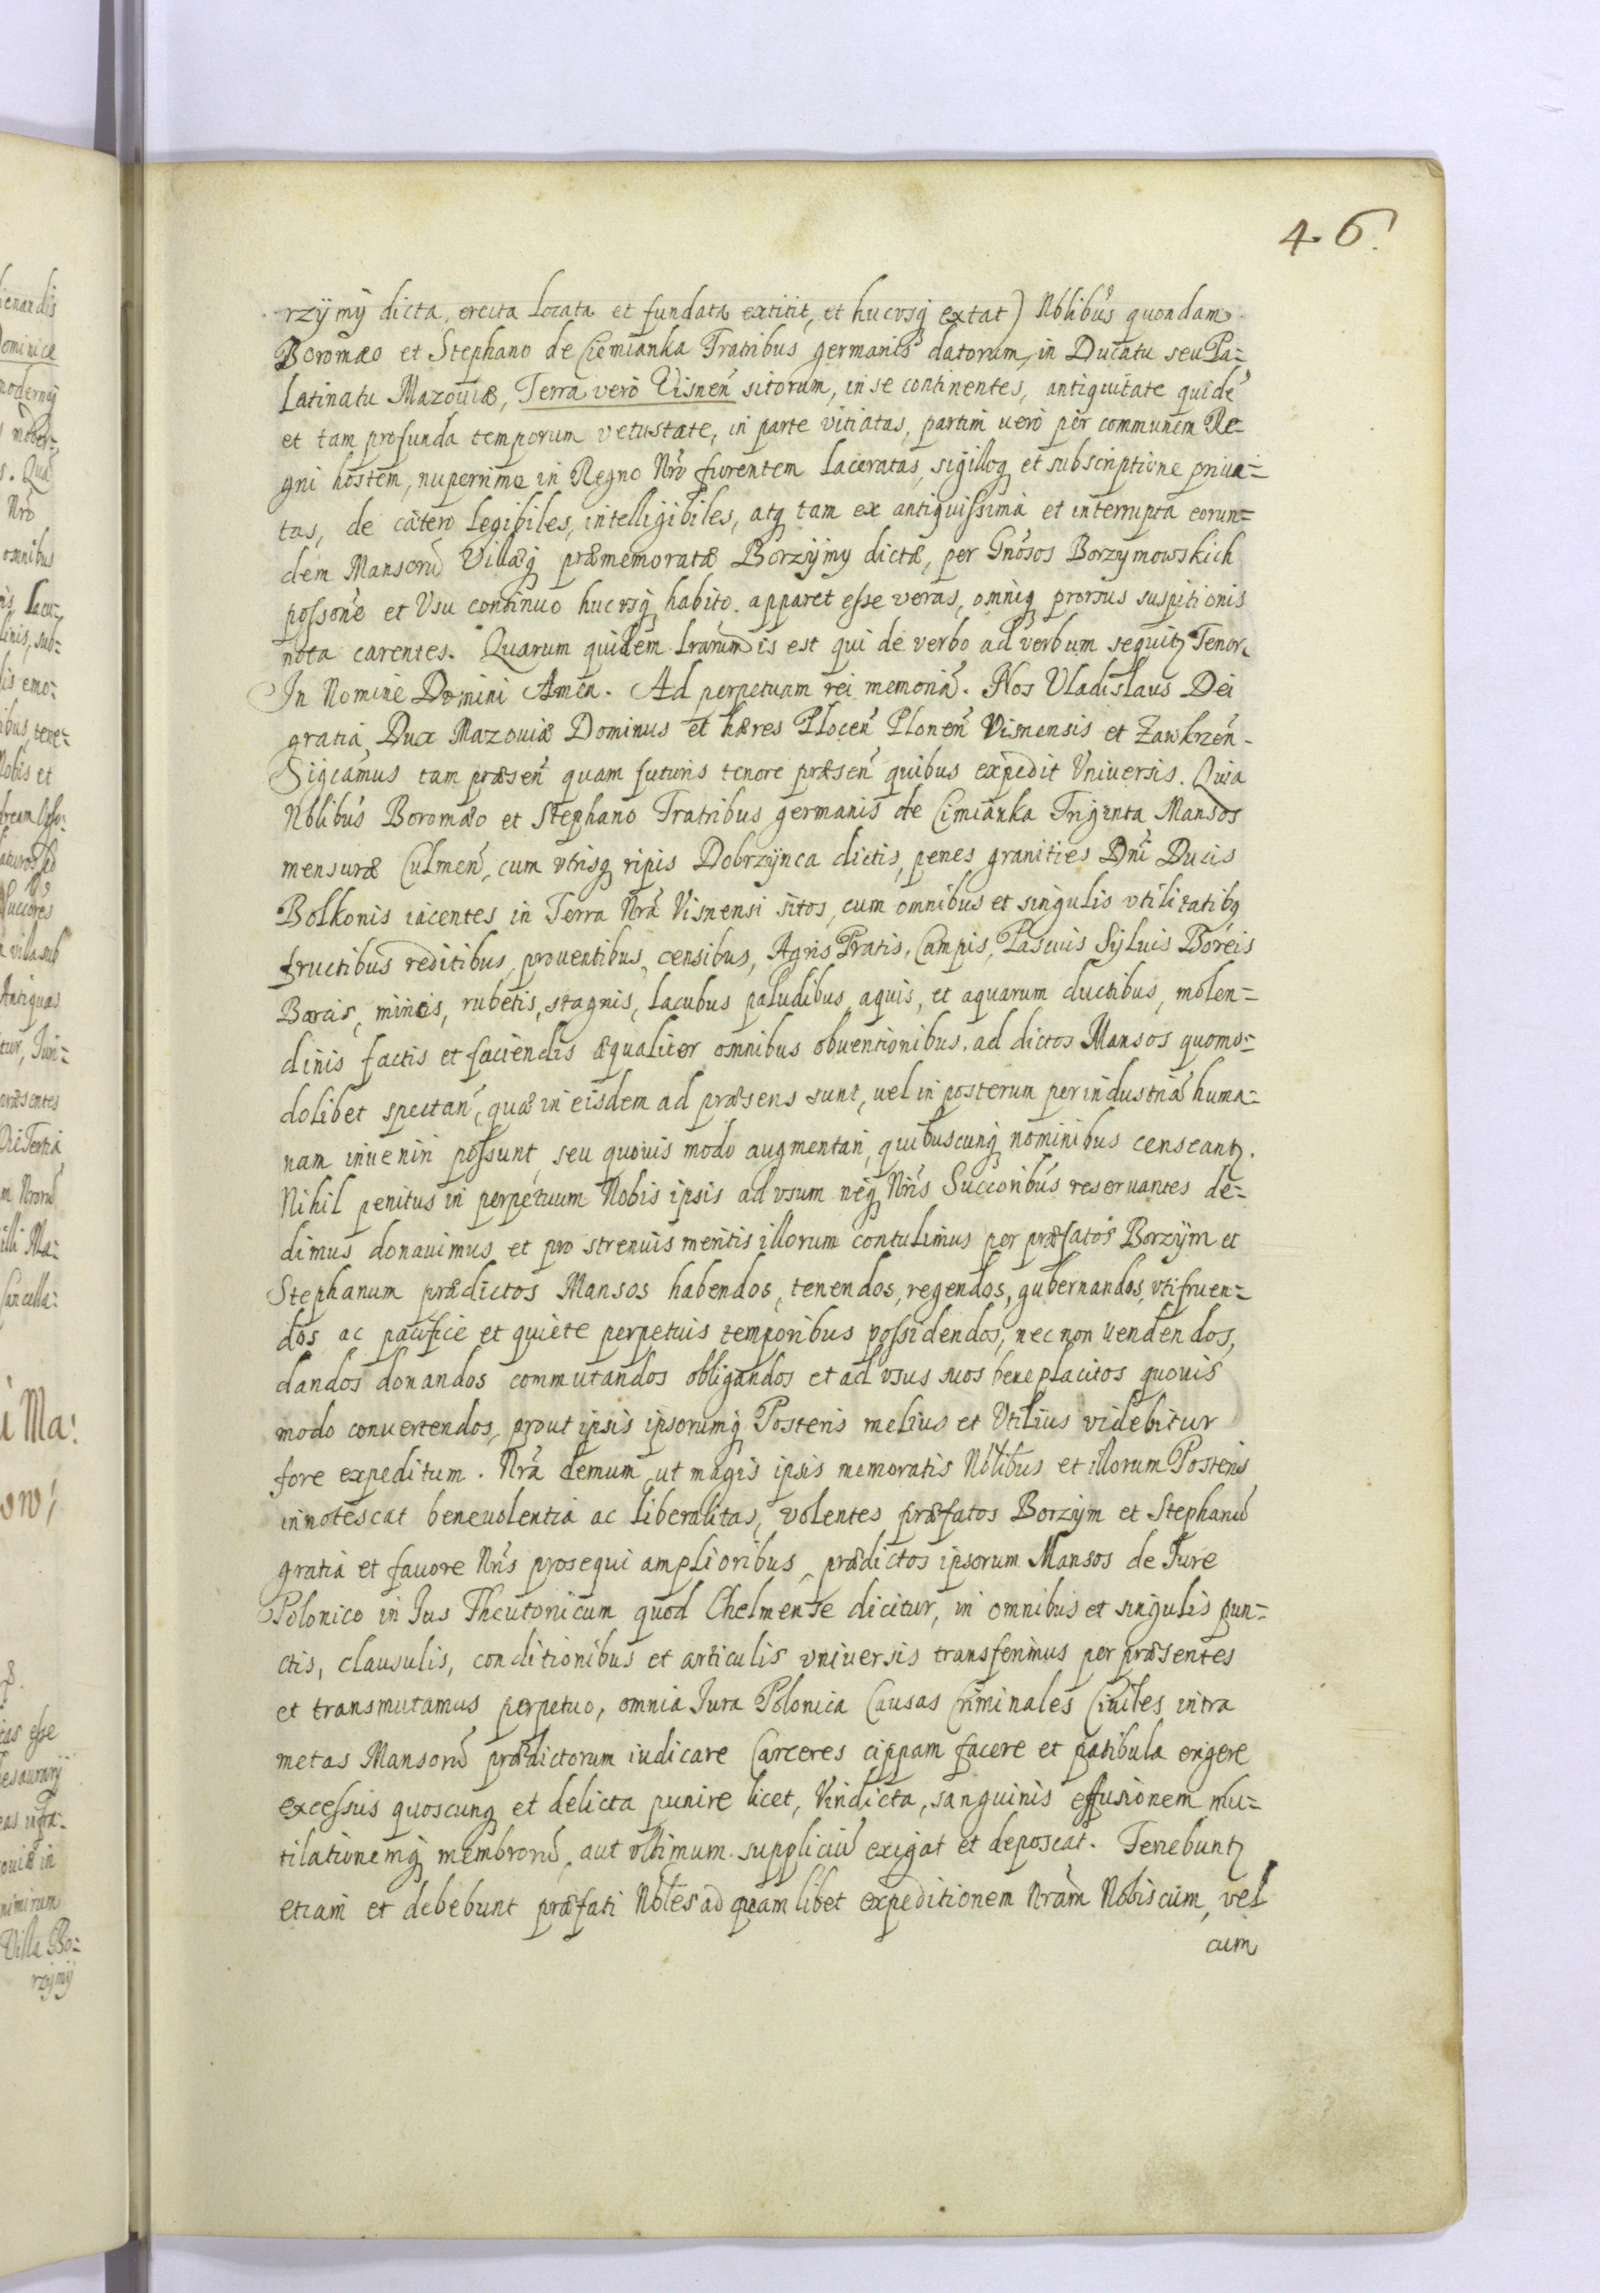 46.
rzÿmÿ dicta, erecta locata et fundata extitit, et hucvsq extat) Nblibus quondam
Boromæo et Stephano de Ciemianka Fratribus germanis datorum, in Ducatu seu Pa=
latinatu Mazouiæ, Terra vero Visnen̄ sitorum, in se continentes, antiquitate quidē
et tam profunda temporum vetustate, in parte vitiatas, partim uerò per communem Re=
gni hostem, nuperrime in Regno Nrō furentem laceratas, sigilloq et subscriptione priua=
tas, de cætero legibiles, intelligibiles, atq tam ex antiquissima et interrupta eorun=
dem Mansorū Villæq præmemoratæ Borzÿmy dictæ, per Gnōsos Borzymowskich
possone et Vsu continuo hucvsq habito. apparet esse veras, omniq prorsus suspitionis
nota carentes. Quarum quidem lrarum is est qui de verbo ad verbum sequitz Tenor.
In Nomine Domini Amen. Ad perpetuam rei memoriā. Nos Vladislaus Dei
gratia Dux Mazouiæ Dominus et hæres Plocen̄ Plonen̄ Visnensis et Zawkrzen̄.
Sigcamus tam præsen̄ quam futuris tenore præsen̄ quibus expedit Vniuersis. Quia
Nblibus Boromæo et Stephano Fratribus germanis de Cimianka Triginta Mansos
mensuræ Culmen̄, cum vtrisq ripis Dobrzÿnca dictis, penes granities Dni Ducis
Bolkonis iacentes in Terra Nrā Visnensi sitos, cum omnibus et singulis vtilitatibq
fructibus reditibus, prouentibus, censibus, Agris Pratis, Campis, Pascuis Syluis Boreis
Borcis, mineis, rubetis, stagnis, lacubus paludibus, aquis, et aquarum ductibus, molen=
dinis factis et faciendis æqualiter omnibus obuentionibus. ad dictos Mansos quomo=
dolibet spectan̄, quæ in eisdem ad præsens sunt, uel in posterum per industriā huma=
nam inueniri possunt, seu quouis modo augmentari, quibuscunq nominibus censeantz.
Nihil penitus in perpetuum Nobis ipsis ad vsum neq Nris Succoribus reseruantes de=
dimus donauimus et pro strenuis meritis illorum contulimus per præfatos Borzÿm et
Stephanum prædictos Mansos habendos, tenendos, regendos, gubernandos, vtifruen=
dos ac pacifice et quiete perpetuis temporibus possidendos, nec non uendendos,
dandos donandos commutandos obligandos et ad vsus suos beneplacitos quouis
modo conuertendos, prout ipsis ipsorumq Posteris melius et Vtilius videbitur
fore expeditum. Nrā demum ut magis ipsis memoratis Nblibus et illorum Posteris
innotescat beneuolentia ac liberalitas, volentes præfatos Borzÿm et Stephanū
gratia et fauore Nris prosequi amplioribus, prædictos ipsorum Mansos de Jure
Polonico in Jus Theutonicum quod Chelmense dicitur, in omnibus et singulis pun=
ctis, clausulis, conditionibus et articulis vniuersis transferimus per præsentes
et transmutamus perpetuo, omnia Jura Polonica Causas Criminales Ciuiles intra
metas Mansorū prædictorum iudicare Carceres cippam facere et patibula erigere
excessus quoscunq et delicta punire licet, Vindicta, sanguinis effusionem mu=
tilationemq membrorū, aut vltimum suppliciū exigat et deposcat. Tenebuntz
etiam et debebunt præfati Nbles ad quamlibet expeditionem Nram Nobiscum, vel
cum